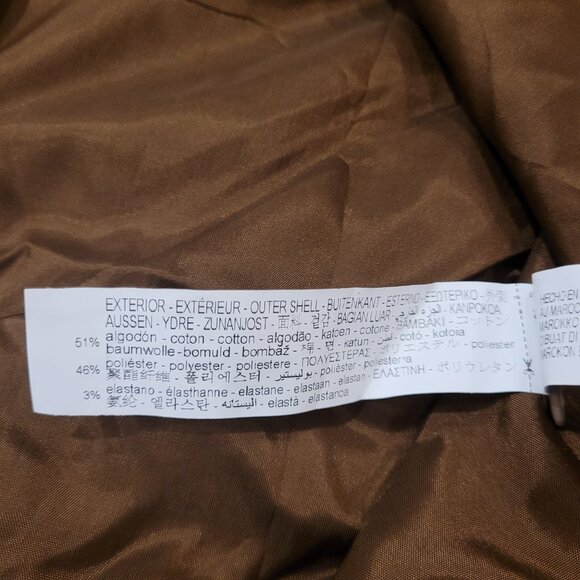 EXTERIOR - EXTÉRIEUR - OUTER SHELL - BUITENKANT - ESTERNO - ΕΞΩΤΕΡΙΚΟ -
AUSSEN - YDRE - ZUNANJOST - 面料 - 겉감 - BAGIAN LUAR -
51% algodón - coton - cotton - algodão - katoen - cotone - ΒΑΜΒΑΚΙ - コットン
baumwolle - bomuld - bombaž - 棉 - 면 - katun - قطن - cotó - kotoia
46% poliéster - polyester - poliestere - ΠΟΛΥΕΣΤΕΡΑΣ - ポリエステル - poliester
聚酯纤维 - 폴리에스터 - بوليستير - polièster - poliesterra
3% elastano - élasthanne - elastane - elastaan - elastan - ΕΛΑΣΤΙΝΗ - ポリウレタン
氨纶 - 엘라스탄 - اليستانه - elastà - elastanca
HECHO EN
AU MAROC
MAROKKO
DIBUAT DI
MAROKON